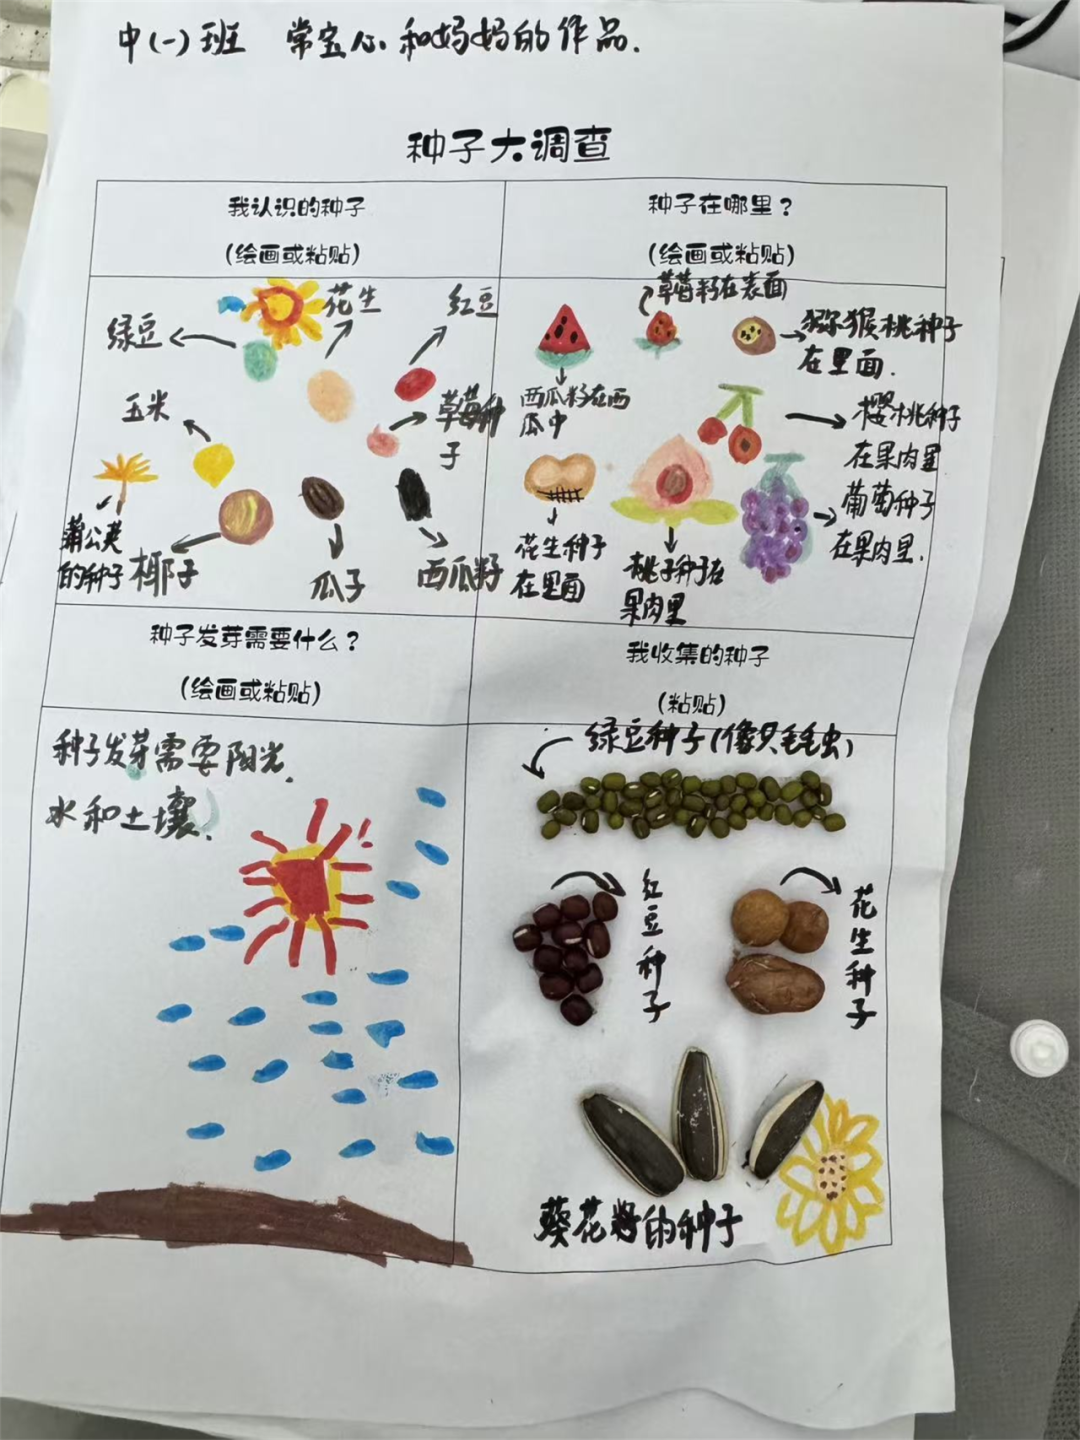 中(一)班 常宝心和妈妈的作品.
种子大调查
我认识的种子
(绘画或粘贴)
种子在哪里?
(绘画或粘贴)
绿豆
花生
红豆
玉米
草莓种
子
蒲公英
的种子
椰子
瓜子
西瓜籽
草莓籽在表面
西瓜籽在西
瓜中
猕猴桃种子
在里面.
樱桃种子
在果肉里
葡萄种子
在果肉里.
花生种子
在里面
桃子种子在
果肉里
种子发芽需要什么?
(绘画或粘贴)
我收集的种子
(粘贴)
种子发芽需要阳光、
水和土壤.
绿豆种子(像只毛毛虫)
红豆种子
花生种子
葵花籽的种子